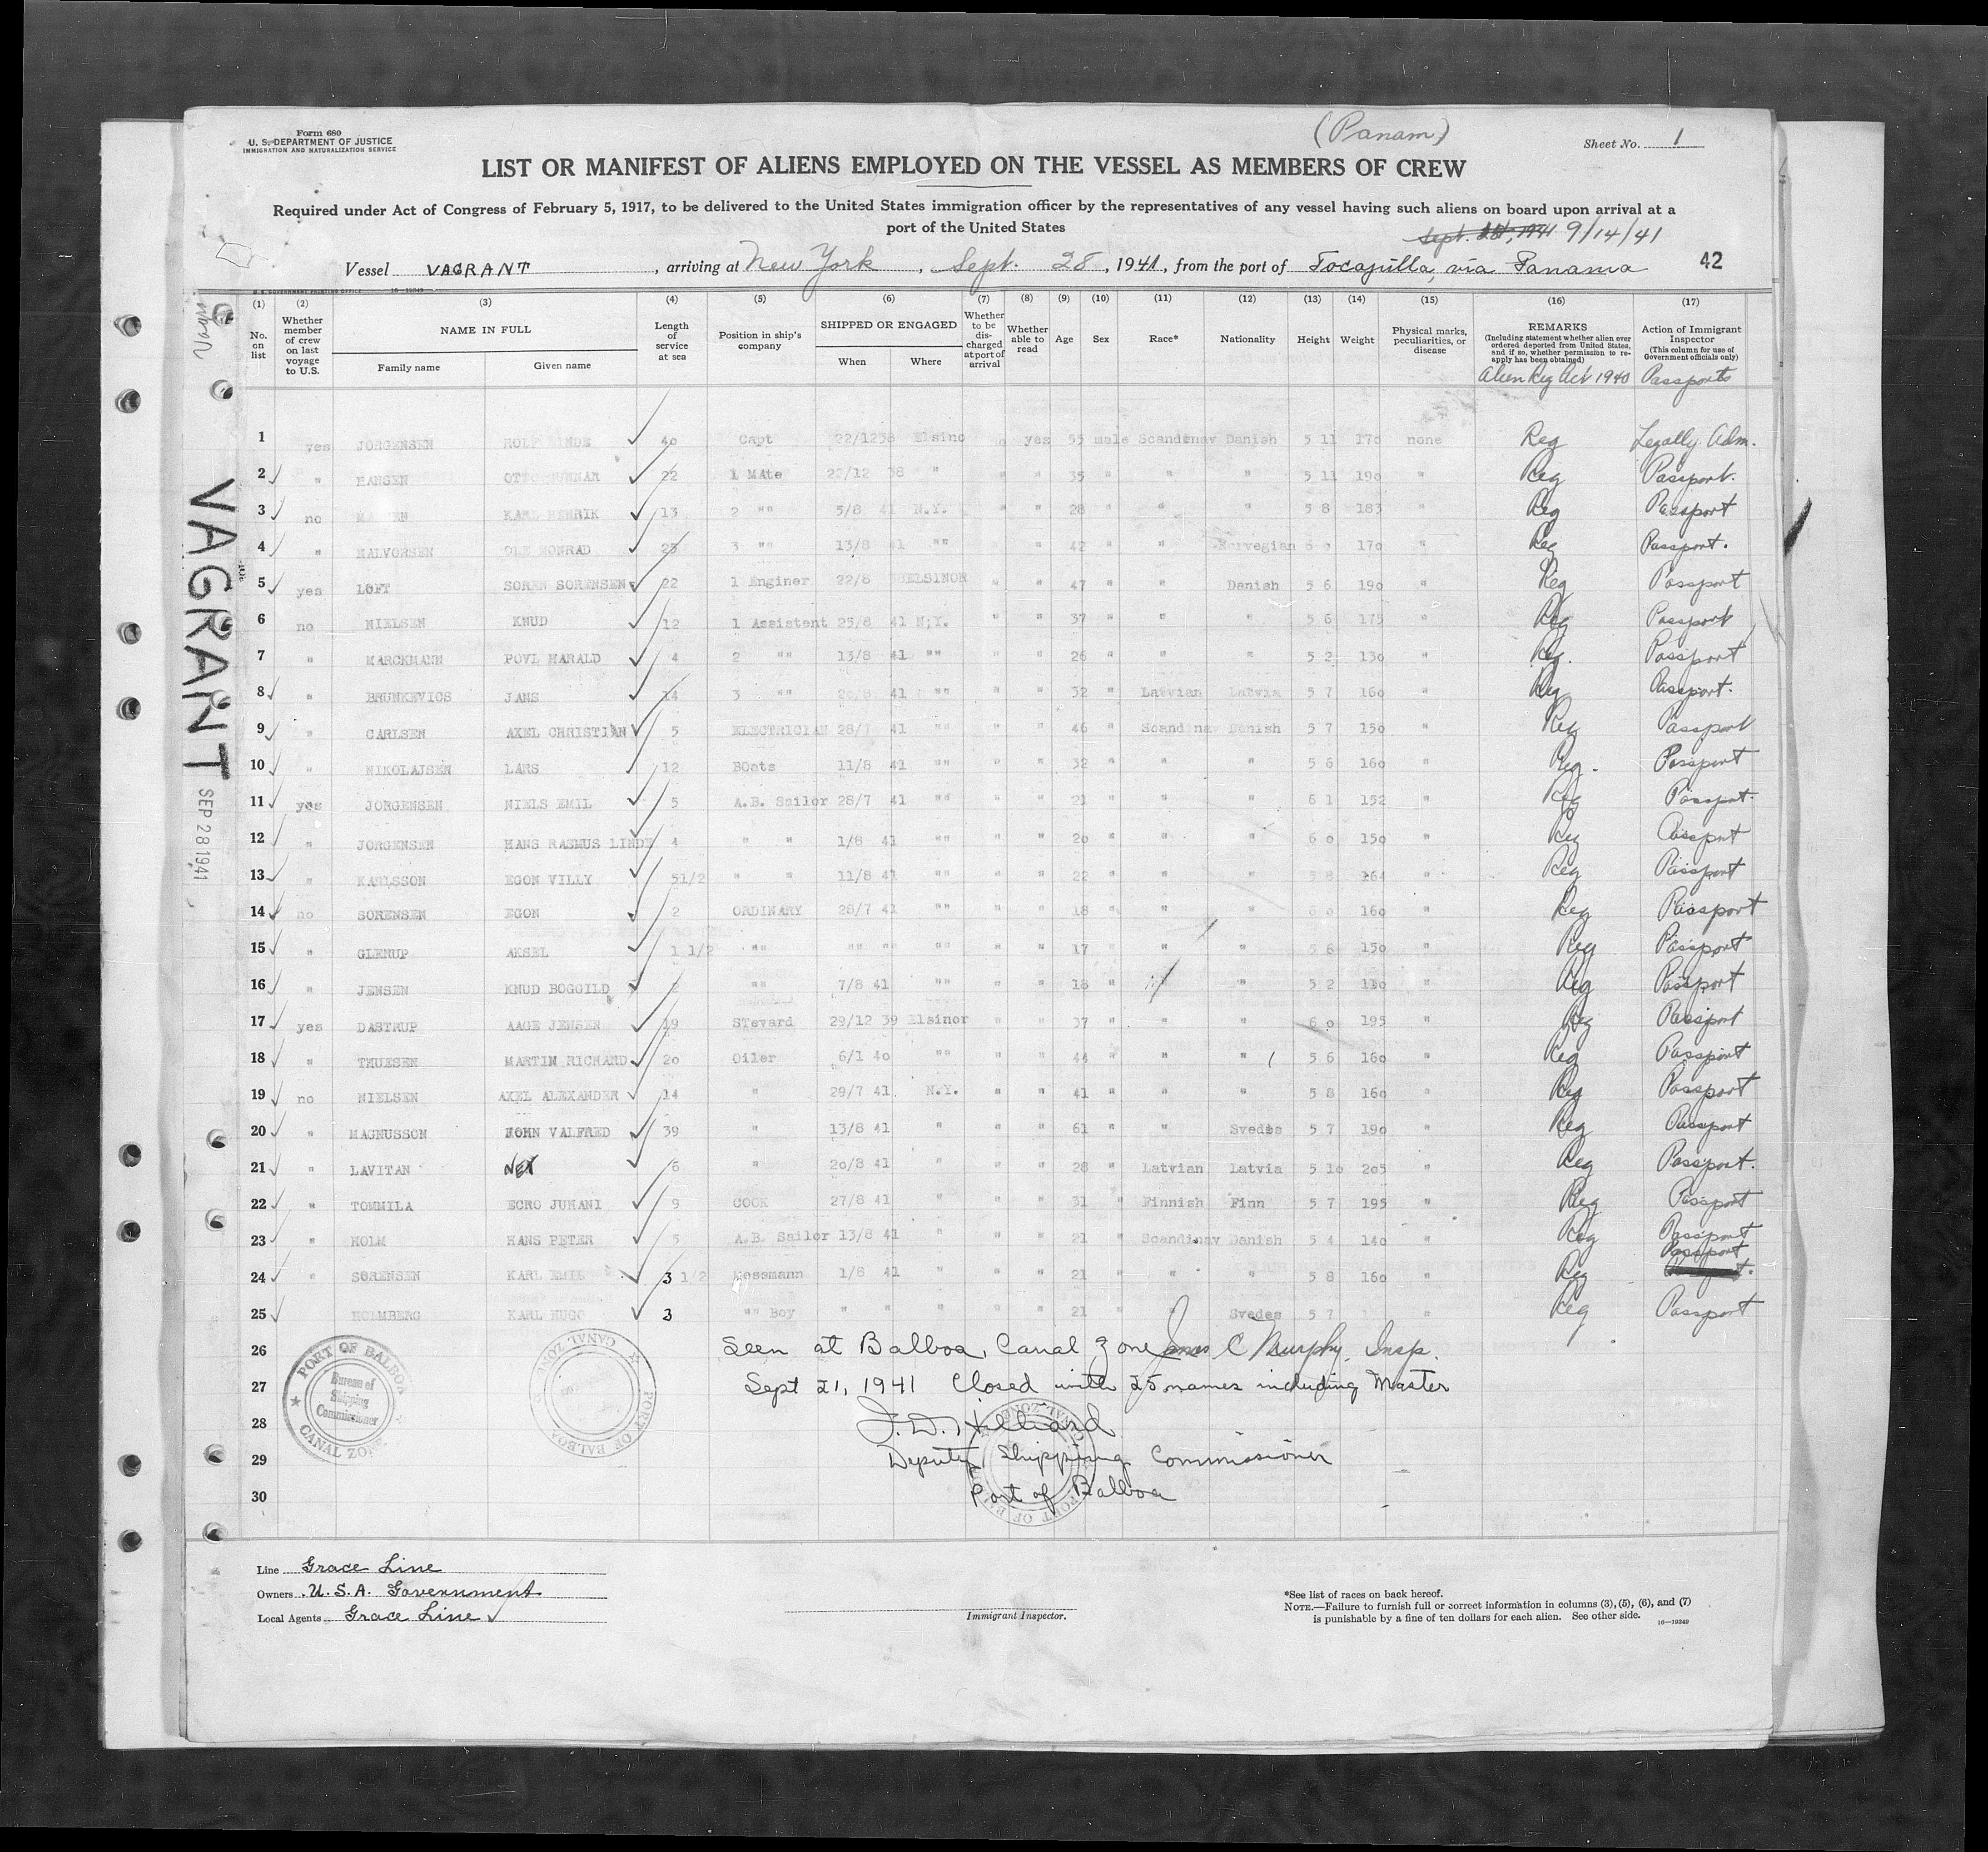 Form 680
U. S. DEPARTMENT OF JUSTICE
IMMIGRATION AND NATURALIZATION SERVICE
(Panam)
Sheet No. 1
LIST OR MANIFEST OF ALIENS EMPLOYED ON THE VESSEL AS MEMBERS OF CREW
Required under Act of Congress of February 5, 1917, to be delivered to the United States immigration officer by the representatives of any vessel having such aliens on board upon arrival at a
port of the United States
9/14/41
Vessel VAGRANT, arriving at New York, Sept. 28, 1941, from the port of Tocapilla, via Panama 42
U. S. GOVERNMENT PRINTING OFFICE 16—19349
(1) (2) (3) (4) (5) (6) (7) (8) (9) (10) (11) (12) (13) (14) (15) (16) (17)
No. on list
Whether member of crew on last voyage to U.S.
NAME IN FULL
Family name Given name
Length of service at sea
Position in ship's company
SHIPPED OR ENGAGED
When Where
Whether to be discharged at port of arrival
Whether able to read
Age Sex Race* Nationality Height Weight
Physical marks, peculiarities, or disease
REMARKS
(Including statement whether alien ever ordered deported from United States, and if so, whether permission to reapply has been obtained)
Alien Reg Act 1940
Action of Immigrant Inspector
(This column for use of Government officials only)
Passports
1 yes JORGENSEN 40 Capt 22/1238 Elsino yes 55 male Scandenav Danish 5 11 170 none Reg Legally Adm.
2 " HANSEN OTTO GUNNAR 22 1 MAte 20/12 38 " " " 35 " " " 5 11 190 " Reg Passport.
3 no KARL HENRIK 13 2 "" 5/8 41 N.Y. " " 28 " " " 5 8 183 " Reg Passport
4 " HALVORSEN OLE KONRAD 25 3 "" 13/8 41 "" " 42 " " Norvegian 6 0 170 " Reg Passport.
5 yes LOFT SOREN SORENSEN 22 1 Enginer 22/8 ELSINOR " " 47 " " Danish 5 6 190 " Reg Passport
6 no NIELSEN KNUD 12 1 Assistent 25/8 41 N;Y. " " 37 " " " 5 6 175 " Reg Passport
7 " MARCKMANN POVL HARALD 4 2 "" 13/8 41 "" " " 26 " " " 5 2 130 " Reg. Passport
8 " BRUNKEVICS JANS 14 3 "" 20/8 41 "" " " 32 " Latvian Latvia 5 7 160 " Reg Passport.
9 " CARLSEN AXEL CHRISTIAN 5 ELECTRICIAN 28/7 41 "" " " 46 " Scandinav Danish 5 7 150 " Reg Passport
10 " NIKOLAJSEN LARS 12 BOats 11/8 41 "" " " 32 " " " 5 6 160 " Reg. Passport
11 yes JORGENSEN NIELS EMIL 5 A.B. Sailor 28/7 41 "" " " 21 " " " 6 1 152 " Reg Passport.
12 " JORGENSEN HANS RASMUS LINDE 4 " " 1/8 41 "" " " 20 " " " 6 0 150 " Reg Passport
13 " KARLSSON EGON VILLY 51/2 " " 11/8 41 "" " " 22 " " " 5 8 164 " Reg Passport
14 no SORENSEN EGON 2 ORDINARY 28/7 41 "" " " 18 " " " 160 " Reg Passport
15 " GLENUP AKSEL 1 1/2 "" "" "" "" " " 17 " " " 5 6 150 " Reg Passport
16 " JENSEN KNUD BOGGILD "" 7/8 41 "" " " 18 " " " 5 2 130 " Reg Passport
17 yes DASTRUP AAGE JENSEN 19 STevard 29/12 39 Elsinor " " 37 " " " 6 0 195 " Reg Passport
18 " THUESEN MARTIN RICHARD 20 Oiler 6/1 40 "" " " 44 " " " 5 6 160 " Reg Passport
19 no NIELSEN AXEL ALEXANDER 14 " 29/7 41 N.Y. " " 41 " " " 5 8 160 " Reg Passport
20 " MAGNUSSON JOHN VALFRED 39 " 13/8 41 " " " 61 " " Svedes 5 7 190 " Reg Passport
21 " LAVITAN 6 " 20/8 41 " " " 28 " Latvian Latvia 5 10 205 " Reg Passport.
22 " TOMMILA ECRO JUHANI 9 COOK 27/8 41 " " " 31 " Finnish Finn 5 7 195 " Reg Passport
23 " HOLM HANS PETER 5 A.B. Sailor 13/8 41 " " " 21 " Scandinav Danish 5 4 140 " Reg Passport
24 " SORENSEN KARL EMIL 3 1/2 Messmann 1/8 41 " " " 21 " " " 5 8 160 " Reg Passport
25 HOLMBERG KARL HUGO 3 "" Boy " " " " " 21 " " Svedes 5 7 " Reg Passport
26 Seen at Balboa, Canal Zone James C Murphy, Insp.
27 Sept 21, 1941 Closed with 25 names including Master
28 J. D. Hilliard
29 Deputy Shipping Commissioner
30 Port of Balboa
PORT OF BALBOA
Bureau of Shipping Commissioner
CANAL ZONE
PORT OF BALBOA
CANAL ZONE
PORT OF BALBOA
CANAL ZONE
VAGRANT
SEP 28 1941
Line Grace Line
Owners U.S.A. Government
Local Agents Grace Line
Immigrant Inspector.
*See list of races on back hereof.
NOTE.—Failure to furnish full or correct information in columns (3), (5), (6), and (7)
is punishable by a fine of ten dollars for each alien. See other side. 16—19349